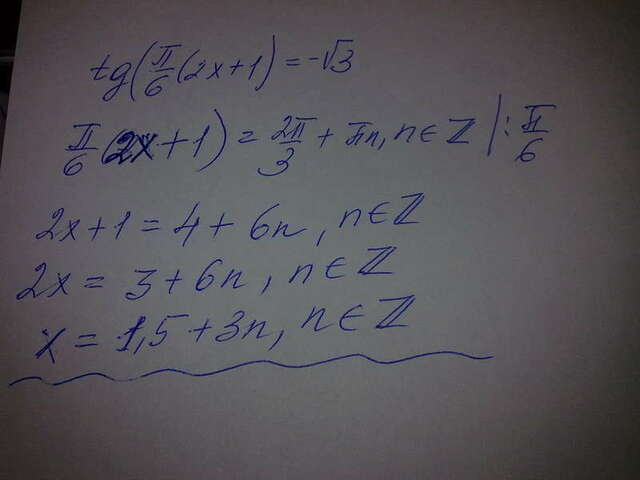 tg(π/6(2x+1)=-√3
π/6(2x+1)=2π/3+πn, n∈ℤ |:π/6
2x+1=4+6n, n∈ℤ
2x=3+6n, n∈ℤ
x=1,5+3n, n∈ℤ